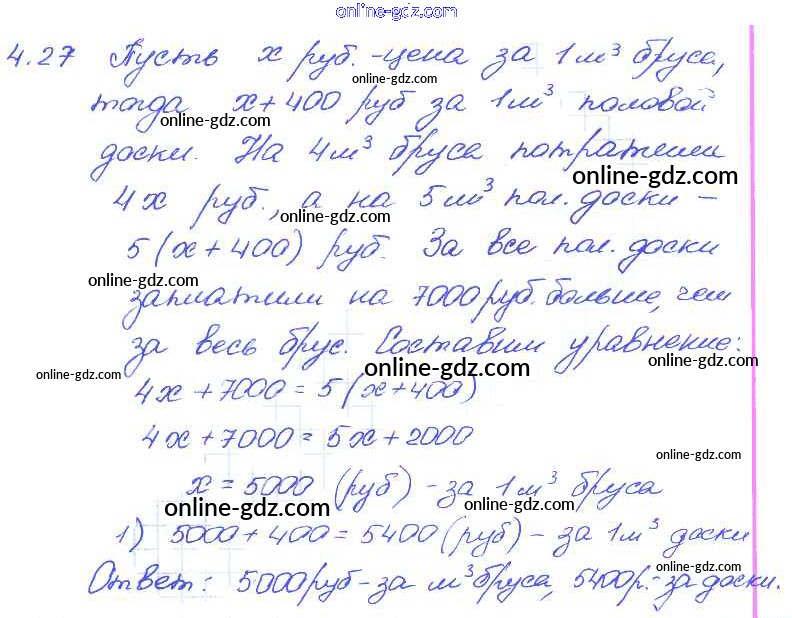 online-gdz.com
4.27 Пусть x руб. - цена за 1 м³ бруса,
online-gdz.com
тогда x + 400 руб за 1 м³ половой
online-gdz.com
доски. На 4 м³ бруса потратили
online-gdz.com
4x руб., а на 5 м³ пол. доски -
online-gdz.com
5(x + 400) руб. За все пол. доски
online-gdz.com
заплатили на 7000 руб. больше, чем
за весь брус. Составим уравнение:
online-gdz.com online-gdz.com online-gdz.com
4x + 7000 = 5(x + 400)
4x + 7000 = 5x + 2000
online-gdz.com
x = 5000 (руб) - за 1 м³ бруса
online-gdz.com online-gdz.com
1) 5000 + 400 = 5400 (руб) - за 1 м³ доски
online-gdz.com
Ответ: 5000 руб - за м³ бруса, 5400 р. - за доски.